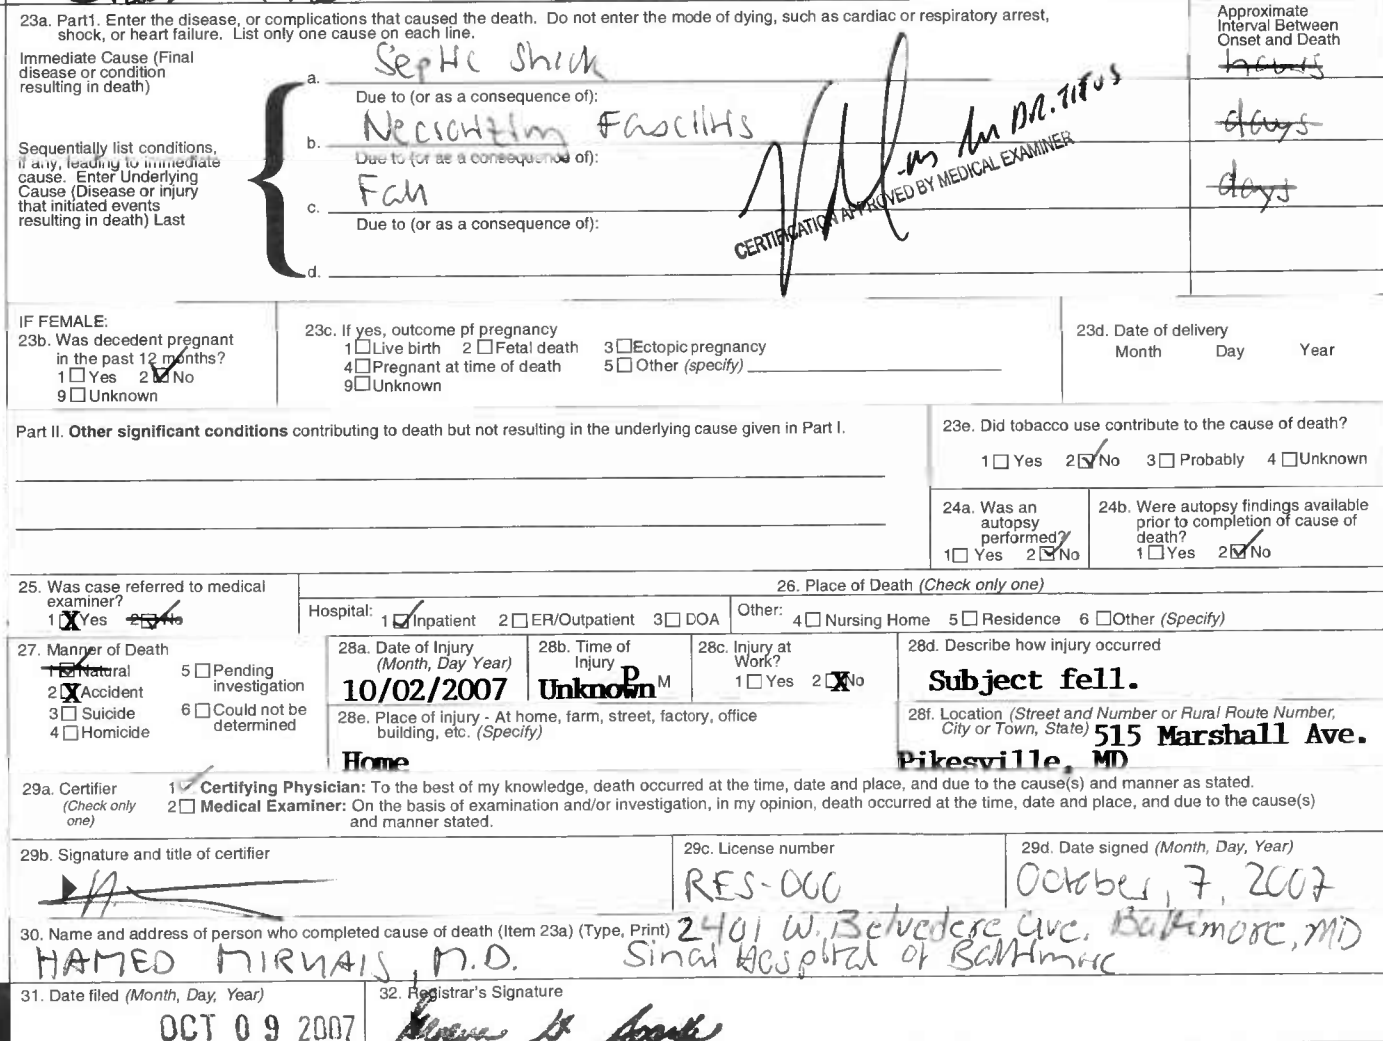 23a. Part1. Enter the disease, or complications that caused the death. Do not enter the mode of dying, such as cardiac or respiratory arrest,
shock, or heart failure. List only one cause on each line.
Approximate
Interval Between
Onset and Death
Immediate Cause (Final
disease or condition
resulting in death)
a. Septic Shock
hours
Due to (or as a consequence of):
Sequentially list conditions,
if any, leading to immediate
cause. Enter Underlying
Cause (Disease or injury
that initiated events
resulting in death) Last
b. Necrotizing Fasciitis
days
Due to (or as a consequence of):
c. Fall
days
Due to (or as a consequence of):
d.
DR. TITUS
CERTIFICATION APPROVED BY MEDICAL EXAMINER
IF FEMALE:
23b. Was decedent pregnant
in the past 12 months?
1 Yes 2 No
9 Unknown
23c. If yes, outcome pf pregnancy
1 Live birth 2 Fetal death 3 Ectopic pregnancy
4 Pregnant at time of death 5 Other (specify)
9 Unknown
23d. Date of delivery
Month Day Year
Part II. Other significant conditions contributing to death but not resulting in the underlying cause given in Part I.
23e. Did tobacco use contribute to the cause of death?
1 Yes 2 No 3 Probably 4 Unknown
24a. Was an
autopsy
performed?
1 Yes 2 No
24b. Were autopsy findings available
prior to completion of cause of
death?
1 Yes 2 No
25. Was case referred to medical
examiner?
1 X Yes 2 No
26. Place of Death (Check only one)
Hospital: 1 Inpatient 2 ER/Outpatient 3 DOA
Other: 4 Nursing Home 5 Residence 6 Other (Specify)
27. Manner of Death
1 Natural
2 X Accident
3 Suicide
4 Homicide
5 Pending
investigation
6 Could not be
determined
28a. Date of Injury
(Month, Day Year)
10/02/2007
28b. Time of
Injury
Unknown P M
28c. Injury at
Work?
1 Yes 2 X No
28d. Describe how injury occurred
Subject fell.
28e. Place of injury - At home, farm, street, factory, office
building, etc. (Specify)
Home
28f. Location (Street and Number or Rural Route Number,
City or Town, State) 515 Marshall Ave.
Pikesville, MD
29a. Certifier
(Check only
one)
1 Certifying Physician: To the best of my knowledge, death occurred at the time, date and place, and due to the cause(s) and manner as stated.
2 Medical Examiner: On the basis of examination and/or investigation, in my opinion, death occurred at the time, date and place, and due to the cause(s)
and manner stated.
29b. Signature and title of certifier
29c. License number
RES-000
29d. Date signed (Month, Day, Year)
October, 7, 2007
30. Name and address of person who completed cause of death (Item 23a) (Type, Print) 2401 W. Belvedere ave, Baltimore, MD
HAMED MIRWAIS, M.D. Sinai Hospital of Baltimore
31. Date filed (Month, Day, Year)
OCT 09 2007
32. Registrar's Signature